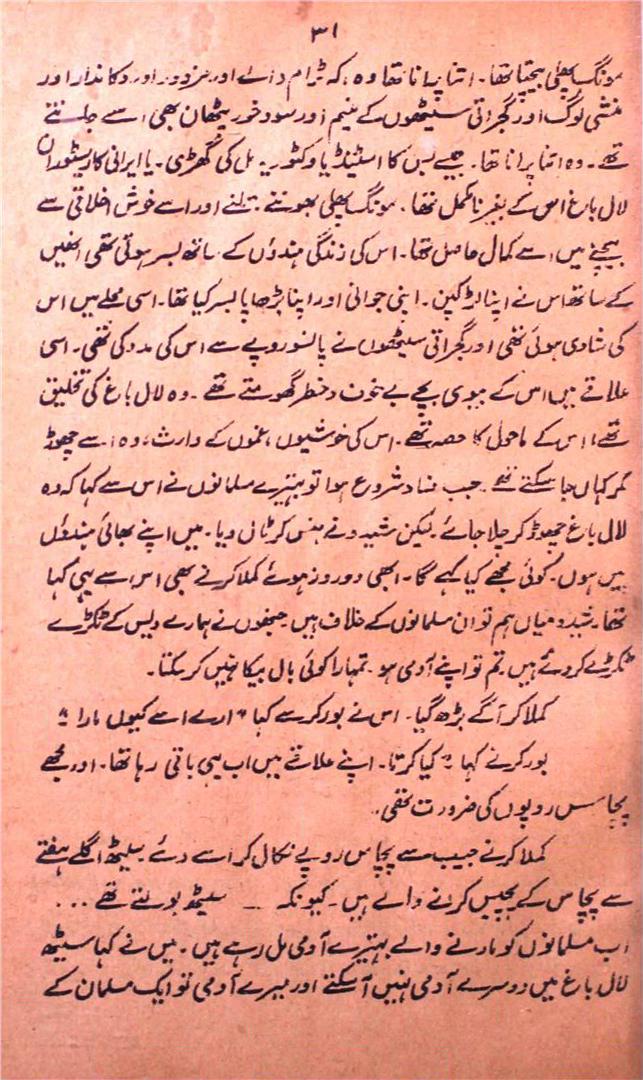 ۳۱
مونگ پھلی بیچتا تھا۔ اتنا پرانا تھا وہ، کہ ٹرام والے اور مزدور اور دکاندار اور
منشی لوگ اور گجراتی سیٹھوں کے منیم اور سود خور پٹھان بھی اسے جانتے
تھے۔ وہ اتنا پرانا تھا۔ جیسے بس کا اسٹینڈ یا وکٹوریہ مل کی گھڑی۔ یا ایرانی کا ریسٹوران
لال باغ اس کے بغیر نامکمل تھا۔ مونگ پھلی بھوننے، تلنے اور اسے خوش اخلاقی سے
بیچنے میں اسے کمال حاصل تھا۔ اس کی زندگی ہندوں کے ساتھ بسر ہوتی تھی انھیں
کے ساتھ اس نے اپنا لڑکپن۔ اپنی جوانی اور اپنا بڑھاپا بسر کیا تھا۔ اسی محلے میں اس
کی شادی ہوئی تھی اور گجراتی سیٹھوں نے پانسو روپے سے اس کی مدد کی تھی۔ اسی
علاقے میں اس کے بیوی بچے بے خوف و خطر گھومتے تھے۔ وہ لال باغ کی تخلیق
تھے، اس کے ماحول کا حصہ تھے۔ اس کی خوشیوں، غموں کے وارث، وہ اسے چھوڑ
کر کہاں جا سکتے تھے۔ جب فساد شروع ہوا تو بہتیرے مسلمانوں نے اس سے کہا کہ وہ
لال باغ چھوڑ کر چلا جائے۔ لیکن شیدو نے ہنس کر ٹال دیا۔ میں اپنے بھائی ہندوں
میں ہوں۔ کوئی مجھے کیا کہے گا۔ ابھی دو روز ہوئے کملاکر نے بھی اس سے یہی کہا
تھا۔ شیدو میاں ہم تو ان مسلمانوں کے خلاف ہیں۔ جنھوں نے ہمارے دیس کے ٹکڑے
ٹکڑے کر دئے ہیں۔ تم تو اپنے آدمی ہو۔ تمہارا کوئی بال بیکا نہیں کر سکتا۔
کملاکر آگے بڑھ گیا۔ اس نے بورکر سے کہا "ارے اسے کیوں مارا"
بورکر نے کہا "کیا کرتا۔ اپنے علاقے میں اب یہی باقی رہا تھا۔ اور مجھے
پچاس روپوں کی ضرورت تھی۔
کملاکر نے جیب سے پچاس روپے نکال کر اسے دئے۔ سیٹھ اگلے ہفتے
سے پچاس کے پچیس کرنے والے ہیں۔ کیونکہ ـــ سیٹھ بولتے تھے ...
اب مسلمانوں کو مارنے والے بہتیرے آدمی مل رہے ہیں۔ میں نے کہا سیٹھ
لال باغ میں دوسرے آدمی نہیں آ سکتے اور میرے آدمی تو ایک مسلمان کے